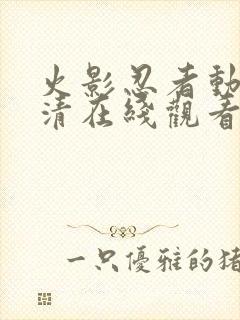 火影忍者動
清在綫觀看
一只優雅的猪